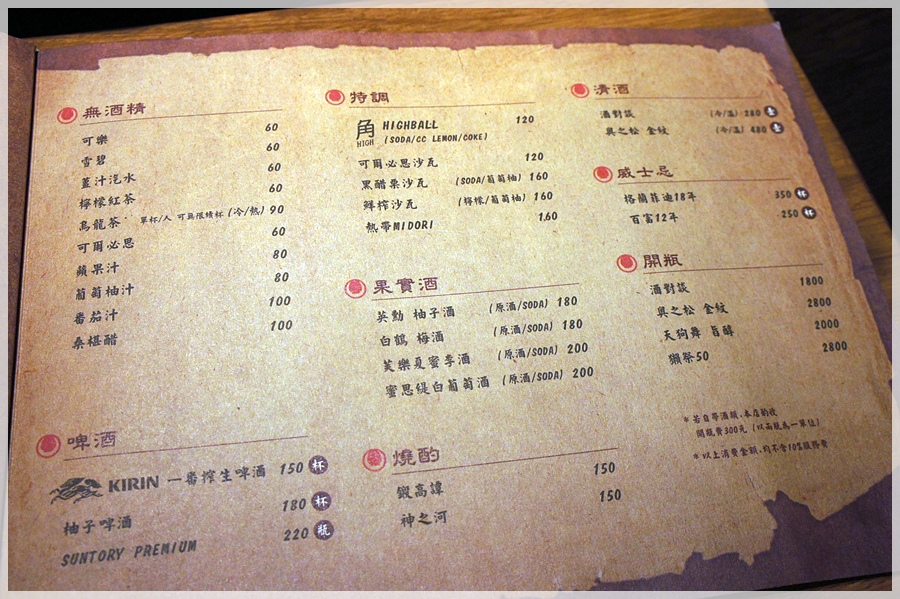 無酒精
可樂 60
雪碧 60
薑汁汽水 60
檸檬紅茶 60
烏龍茶 單杯/人 可無限續杯 (冷/熱) 90
可爾必思 60
蘋果汁 80
葡萄柚汁 80
番茄汁 100
桑椹醋 100
啤酒
KIRIN 一番搾生啤酒 150 杯
柚子啤酒 180 杯
SUNTORY PREMIUM 220 瓶
特調
角 HIGH HIGHBALL 120
(SODA/CC LEMON/COKE)
可爾必思沙瓦 120
黑醋栗沙瓦 (SODA/葡萄柚) 160
鮮榨沙瓦 (檸檬/葡萄柚) 160
熱帶MIDORI 160
果實酒
英勳 柚子酒 (原酒/SODA) 180
白鶴 梅酒 (原酒/SODA) 180
芙樂夏蜜李酒 (原酒/SODA) 200
蜜思緹白葡萄酒 (原酒/SODA) 200
燒酌
鍛高譚 150
神之河 150
清酒
酒對談 (冷/溫) 280
奧之松 金紋 (冷/溫) 480
威士忌
格蘭菲迪18年 350 杯
百富12年 250 杯
開瓶
酒對談 1800
奧之松 金紋 2800
天狗舞 旨醇 2000
獺祭50 2800
*若自帶酒類,本店酌收
開瓶費300元 (以兩瓶為一單位)
*以上消費金額,均不含10%服務費